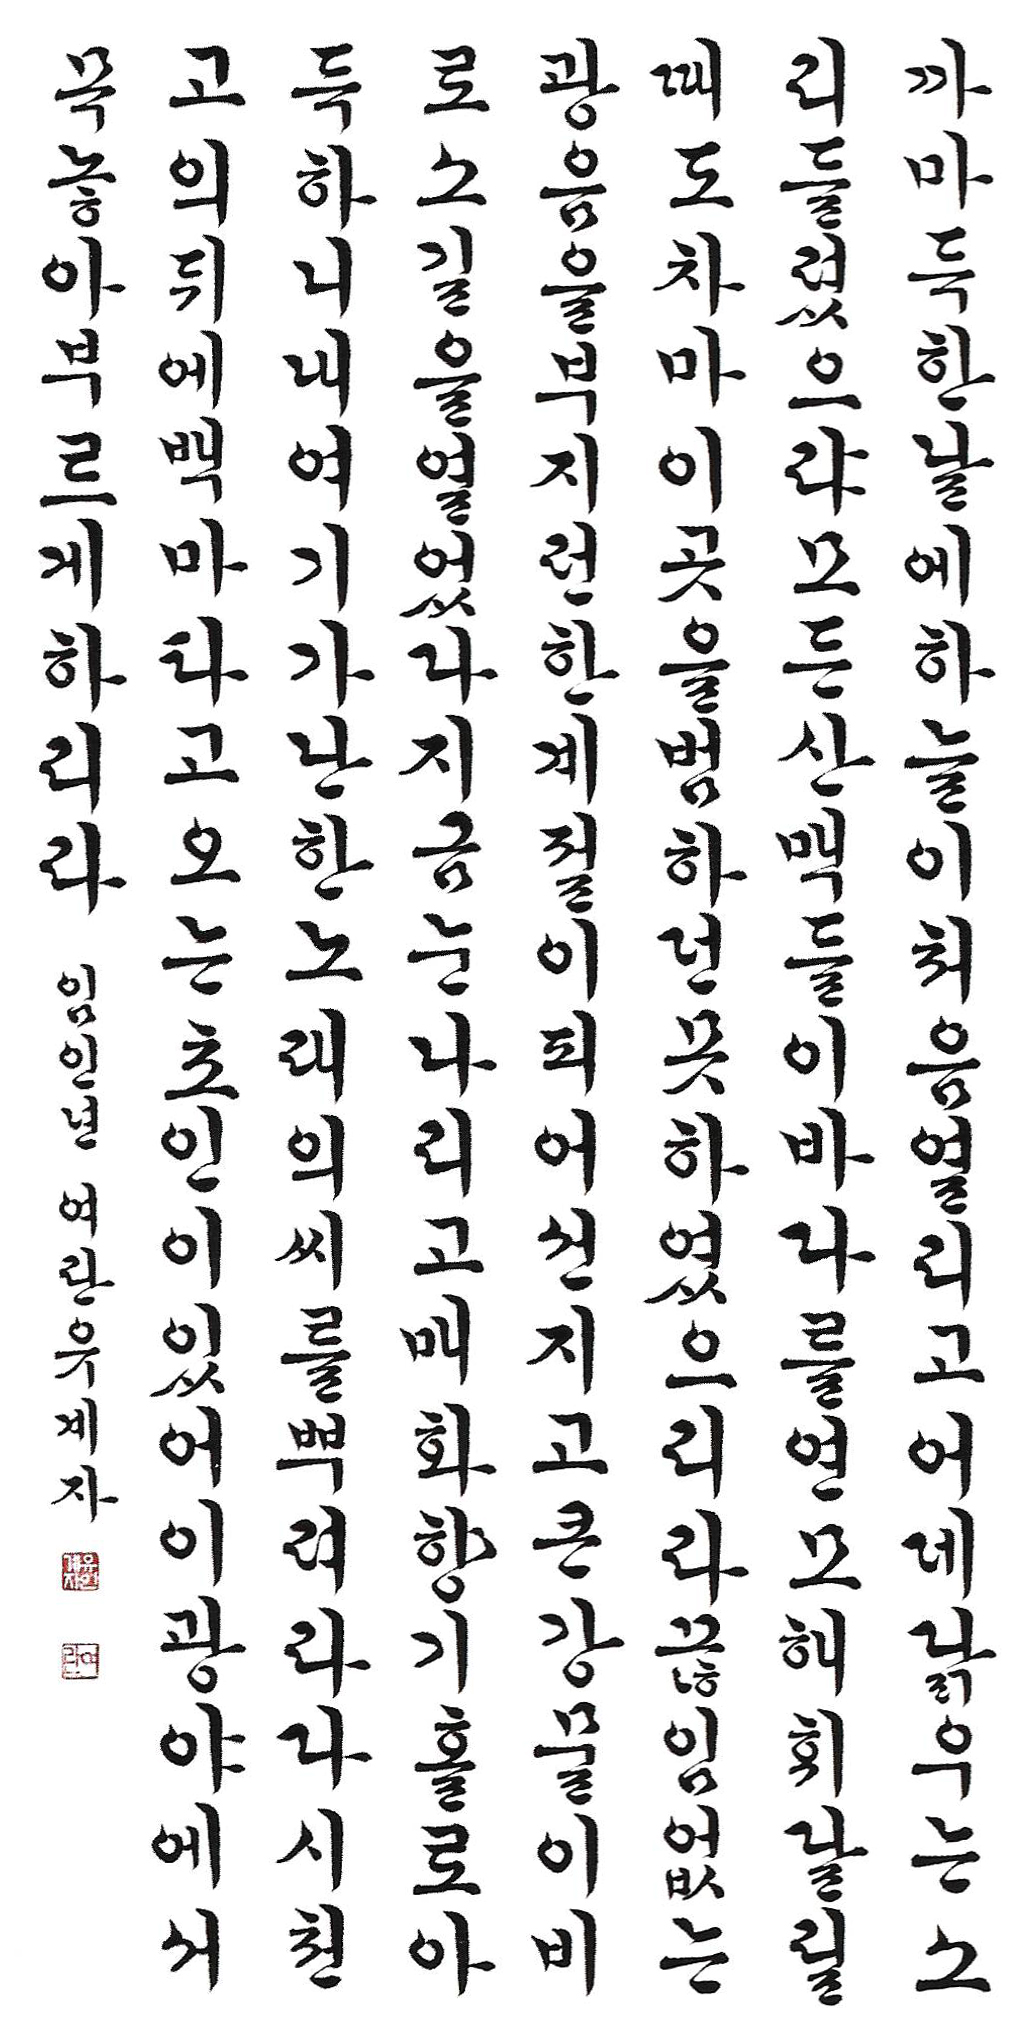 까마득한날에하늘이처음열리고어데닭우는소
리들렸으랴모든산맥들이바다를연모해휘날릴
때도차마이곳을범하던못하였으리라끊임없는
광음을부지런한계절이피어선지고큰강물이비
로소길을열었다지금눈나리고매화향기홀로아
득하니내여기가난한노래의씨를뿌려라다시천
고의뒤에백마타고오는초인이있어이광야에서
목놓아부르게하리라 임인년 여란유계자
유인계자
여란